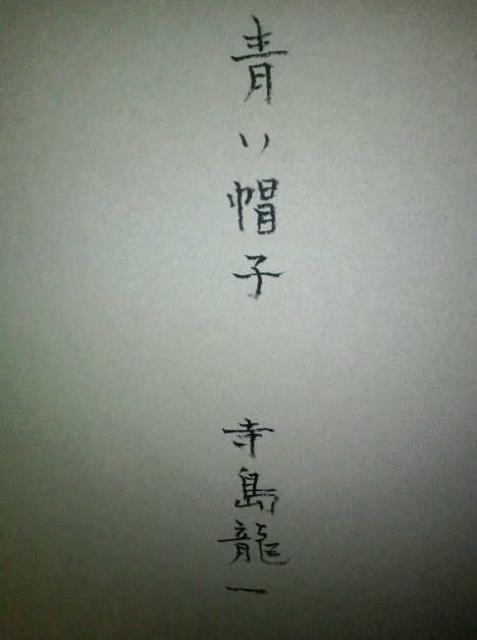 青い帽子
寺島龍一